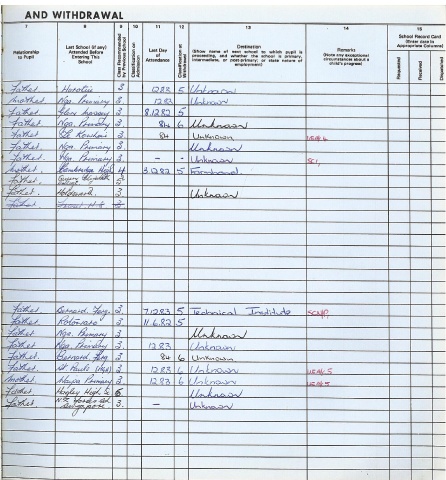 AND WITHDRAWAL
7 8 9 10 11 12 13 14 15
Relationship to Pupil
Last School (if any) Attended Before Entering This School
Class Recommended by Previous School
Classification on Admission
Last Day of Attendance
Classification at Withdrawal
Destination
(Show name of next school to which pupil is proceeding, and whether the school is primary, intermediate, or post-primary; or state nature of employment)
Remarks
(Note any exceptional circumstances about a child's progress)
School Record Card
(Enter date in Appropriate Columns)
Requested Received Despatched
Father 3 1283 5 Unknown
Mother Nga. Primary 3 1283 Unknown
Father 3 81282 5
Father Nga. Primary 3 84 6 Unknown
Father 3 84 Unknown
Father Nga. Primary 3 Unknown
Father. Nga. Primary 3 - - Unknown
Mother. Cambridge High 4 31282 5 Farmhand.
Father.
Father. 3 Unknown
Father 3
Father. Bernard Ferg. 3. 71283 5 Technical Institute
Father. Rotowaro 3 11.6.82 5
Father. Nga. Primary 3 Unknown
Father. Nga. Primary 3 1283 Unknown
Father. Bernard Ferg. 3 84 6 Unknown
Father. St Pauls (Nga) 3 1283 6 Unknown
Mother. Primary 3 1283 6 Unknown
Father. Hagley High 6. Unknown
Father. Singapore. 3. - Unknown